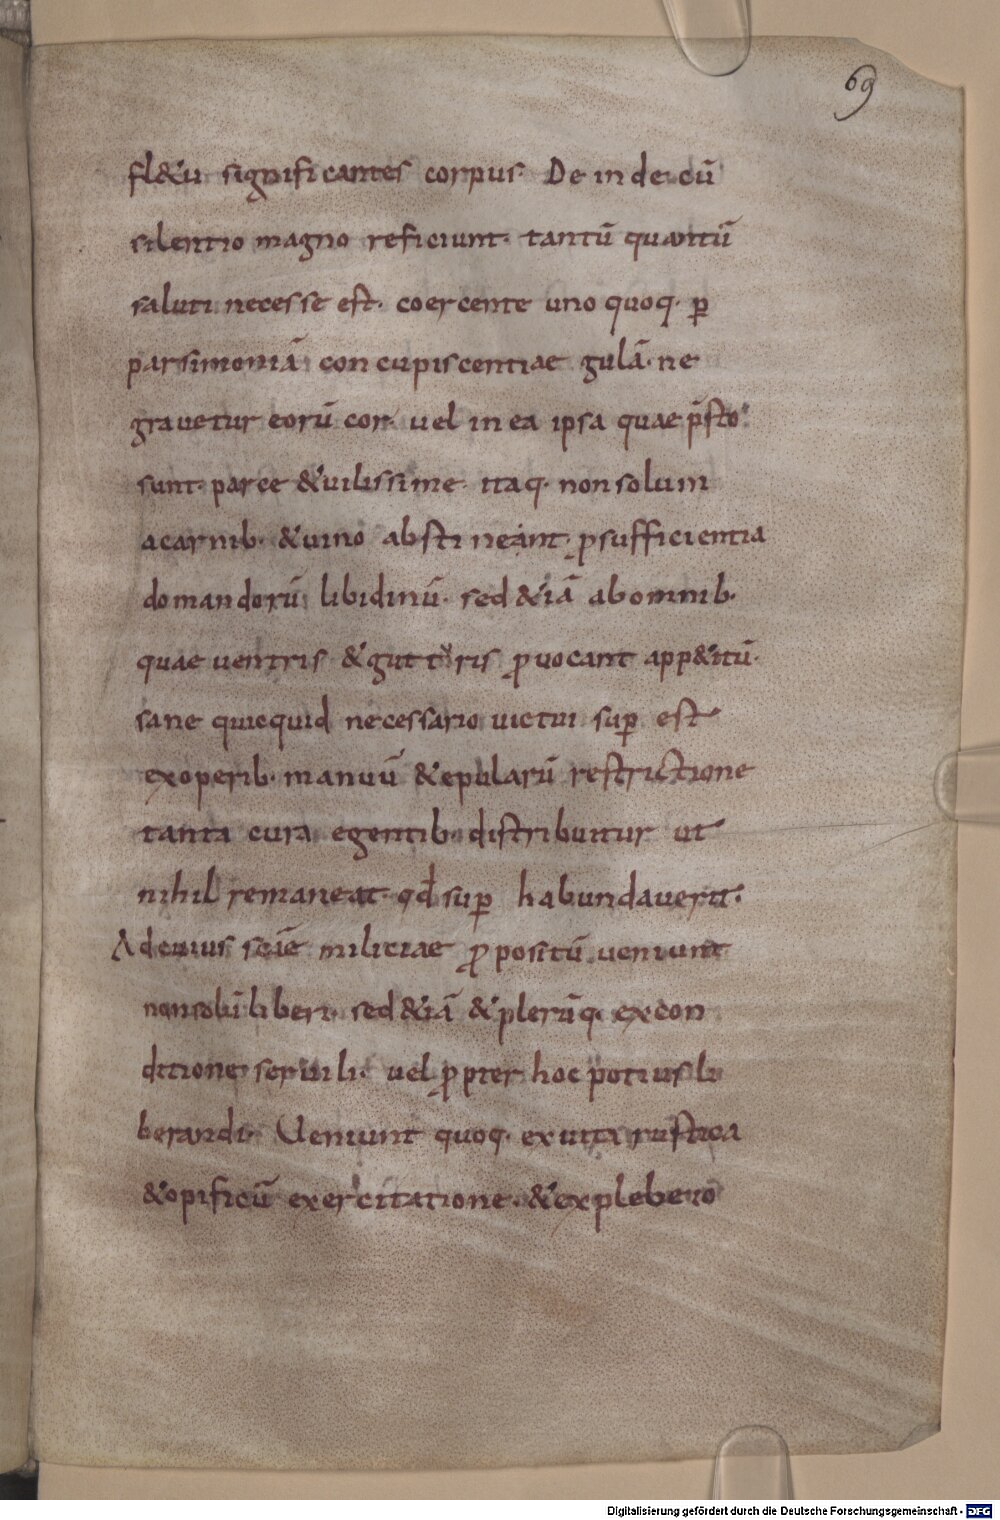 69
fl&u significantes corpus· Deinde cū
silentio magno reficiunt· tantū quantū
saluti necesse est· coercente uno quoq· ꝑ
parsimoniā concupiscentiae gulā· ne
gravetur eorū cor· vel in ea ipsa quae p̄sto
sunt· parce &uilissime· itaq· non solum
a carnib· &uino abstineant· ꝓsufficientia
domandorū libidinū· sed &iā ab omnib·
quae ventris &gutturis ꝓuocant app&itū·
sane quicquid necessario uictui suꝑ est
ex operib· manuū &epularū restrictione
tanta cura egentib· distribuitur ut
nihil remaneat· qd̄ suꝑ habundaverit·
Ad cuius scāe miliciae ꝓpositū veniunt
non solū liberi· sed &iā &plerūq· ex con
ditione servili· vel ꝓpter hoc potius li
berandi· Veniunt quoq· ex uita rustica
&opificū exercitatione· &ex plebeio
Digitalisierung gefördert durch die Deutsche Forschungsgemeinschaft - DFG